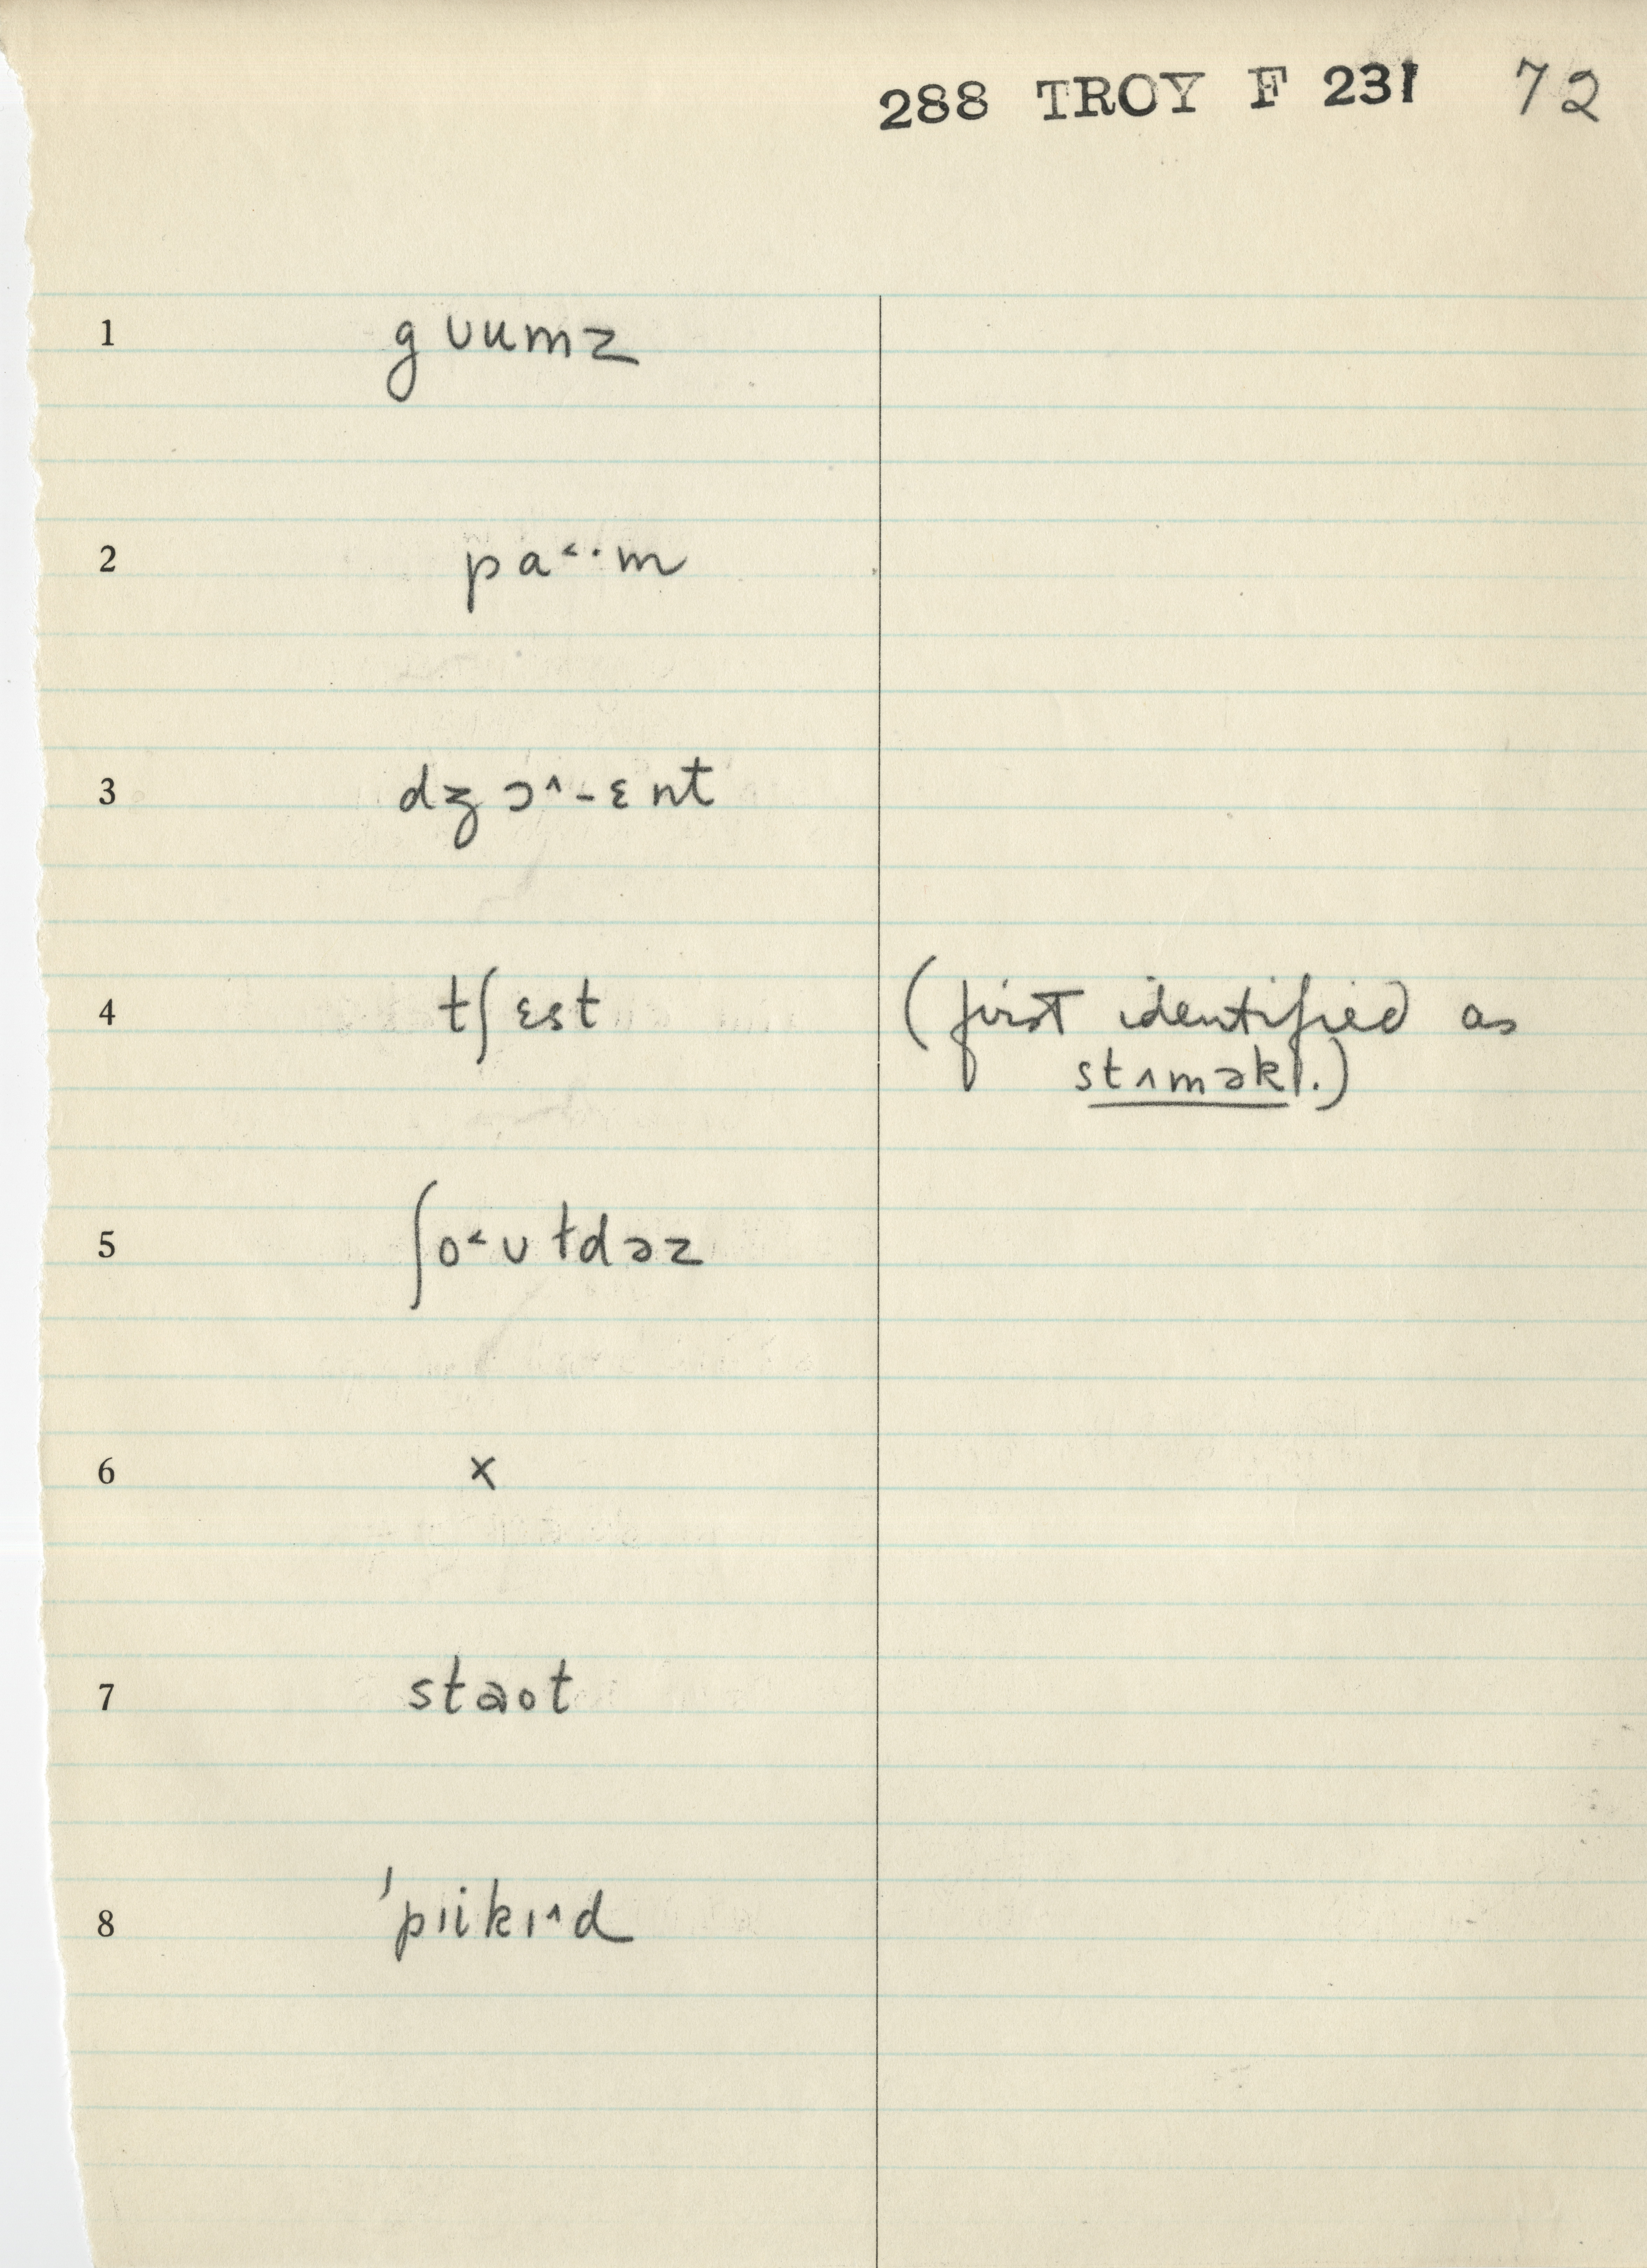 288 TROY F 231 72
1 gʊumz
2 pa˂·m
3 dʒɔ˄-ɛnt
4 tʃɛst (first identified as
stʌmək.)
5 ʃo˂ʊɫdəz
6 x
7 staot
8 'pɪikɪ˄d